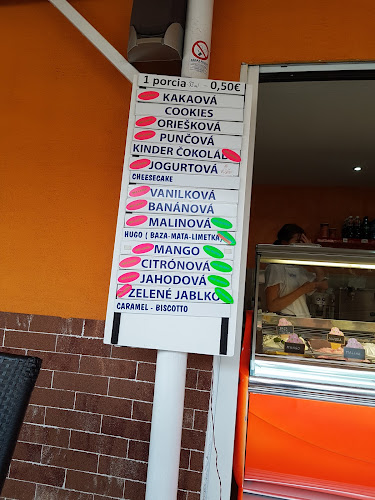 1 porcia - 0,50€
KAKAOVÁ
COOKIES
ORIEŠKOVÁ
PUNČOVÁ
KINDER ČOKOLÁD
JOGURTOVÁ
CHEESECAKE
VANILKOVÁ
BANÁNOVÁ
MALINOVÁ
HUGO ( BAZA-MATA-LIMETKA)
MANGO
CITRÓNOVÁ
JAHODOVÁ
ZELENÉ JABLKO
CARAMEL - BISCOTTO